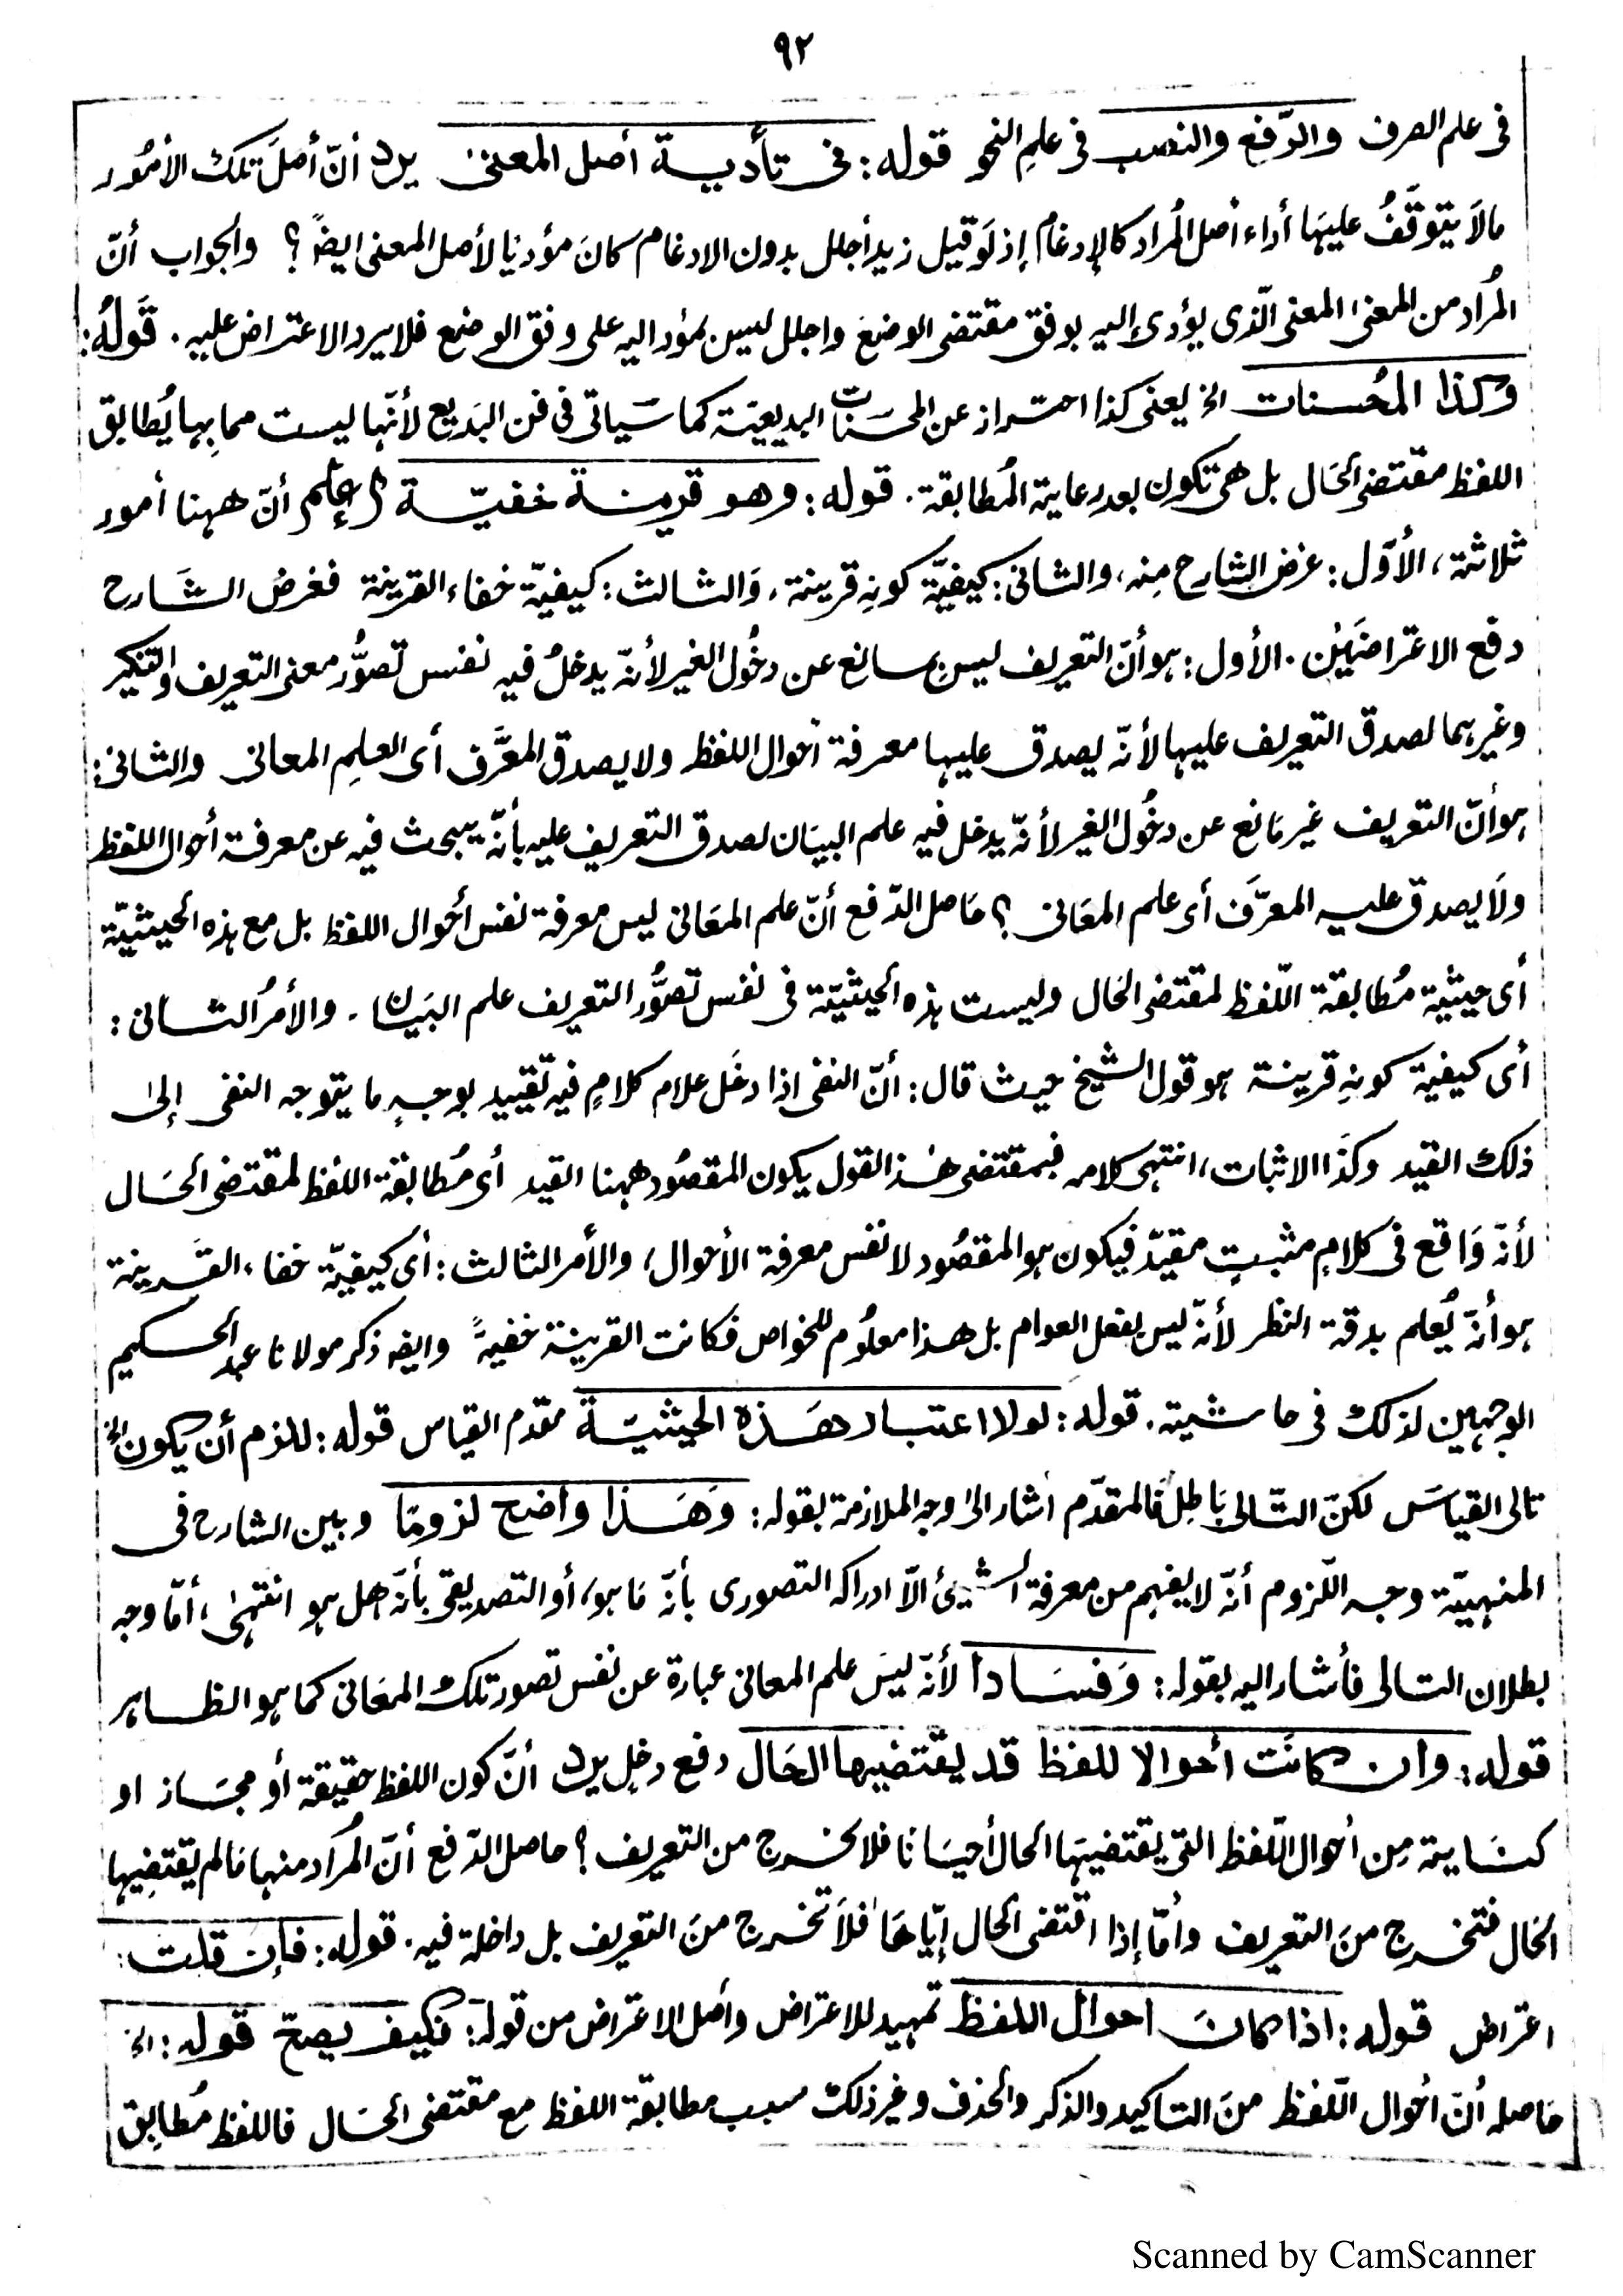 ٩٢
فى علم الصرف والرّفع والنصب فى علمِ النحو قوله: فى تأدية أصل المعنىٰ يرد أنّ أصلَ تلك الأمُور
مالاَ يَتوقَّفُ عليهَا أداء أصل المُراد كالإدغام إذ لَو قيل زيد أجلل بدون الادغام كانَ مؤديا لأصل المعنى ايضًا؟ والجواب أنّ
المُراد من المعنىٰ المعنى الّذى يؤدى إليه بوفق مقتضى الوضعَ واجلل ليس بمؤد اليه على وفق الوضع فلا يرد الاعتراض عليه. قَولهُ:
وكذا المُحسنات الخ يعنى كذا احتراز عن المحسَّنات البديعيّة كما سَياتى فى فن البَديع لأنّها ليست مما بِها يُطابق
اللفظ مقتضى الحَال بل هى تكون بعد رعاية المُطابقة. قوله: وهو قرينة خفيّة (إعلم) أنّ ههنا أمور
ثلاثة، الأوّل: غرض الشارح مِنه، والثانى: كيفيَّة كونهِ قرينة، وَالثالث: كيفيّة خفاء القرينة فغرضُ الشَارح
دفع الاعتراضَيْن. الأول: هو أنّ التعريف ليس بمانع عن دخُول الغير لأنّه يدخلُ فيه نفس تصوُّر معنى التعريف والتنكير
وغيرهما لصدق التعريف عليها لأنّه يصدق عليها معرفة أحوال اللفظ ولا يصدق المعرَّف أى العلمِ المعانى والثانى:
هو أنّ التعريف غير مَانع عن دخُول الغير لأنّه يدخل فيه علم البيَان لصدق التعريف عليه بأنّه يبحث فيه عن معرفة أحوال اللفظ
ولاَ يصدق عليه المعرَّف أى علم المعَانى؟ حَاصل الدّفع أنّ علم المعَانى ليس معرفة نفس أحوال اللفظ بل مع هذه الحيثيّة
أى حيثية مُطابقة اللّفظ لمقتضى الحال وليست هذه الحيثيّة فى نفس تصوُّر التعريف علم البَيان. والأمرُ الثانى:
أى كيفية كونهِ قرينة هو قول الشيخ حيث قال: أنّ النفى اذا دخَل علام كلامٍ فيه تقييد بوجهٍ ما يتوجه النفى إلىٰ
ذلك القيد وكذَا الاثبات، انتهى كلامه فبمقتضى هٰذا القول يكون المقصُود ههنا القيد أى مُطابقة اللفظ لمقتضى الحَال
لأنّه وَاقع فى كلامٍ مثبتٍ مقيدّ فيكون هو المقصُود لا نفس معرفة الأحوال، والأمر الثالث: أى كيفيّة خفاء القَرينة
هو أنّه يُعلم بدقة النظر لأنّه ليس بفعل العوام بل هذا معلُوم للخواص فكانت القرينة خفيةً وايضا ذكر مولانا عبد الحكيم
الوجهين لذلك فى حاشية. قوله: لولا اعتبار هَذه الحيثيّة مقدّم القياس قوله: للزم أن يكون الخ
تالى القياسَ لكنّ التّالى بَاطل فَالمقدّم أشار الىٰ وجه الملازمة بقوله: وَهَذا واضح لزومًا وبين الشارح فى
المنهيّة وجه اللّزوم أنّه لا يفهم من معرفة الشيئ الاّ ادراكه التصورى بأنّه مَا هو، أو التصديقى بأنّه هل هو انتهىٰ، أمّا وجه
بطلان التالى فأشار اليه بقوله: وَفسَادا لأنّه ليسَ علم المعانى عبارة عن نفس تصور تلك المعَانى كما هو الظاهر
قوله: وان كانَت أحوالا للفظ قد يقتضيها الحَال دفع دخلٍ يرد أنّ كون اللفظ حقيقة أو مجَاز او
كنَاية مِن أحوال اللّفظ التى يقتضيهَا الحال أحيَانا فلا يخرج من التعريف؟ حاصل الدّفع أنّ المُرَاد منها مَالم يقتضِيها
الحَال فتخرج منَ التعريف وأمّا إذا اقتضى الحال إيّاهَا فلاَ تخرج منَ التعريف بل داخلة فيه. قوله: فإن قلت:
اعتراض قوله: اذا كانَ احوال اللفظ تمهيد للاعتراض وأصل الاعتراض من قوله: فكيف يصحّ قوله: الخ
حَاصله أنّ أحوال اللّفظ منَ التاكيد والذكر والحذف وغير ذلك سبب مطابقة اللفظ مع مقتضى الحَال فاللفظ مُطابِق
Scanned by CamScanner